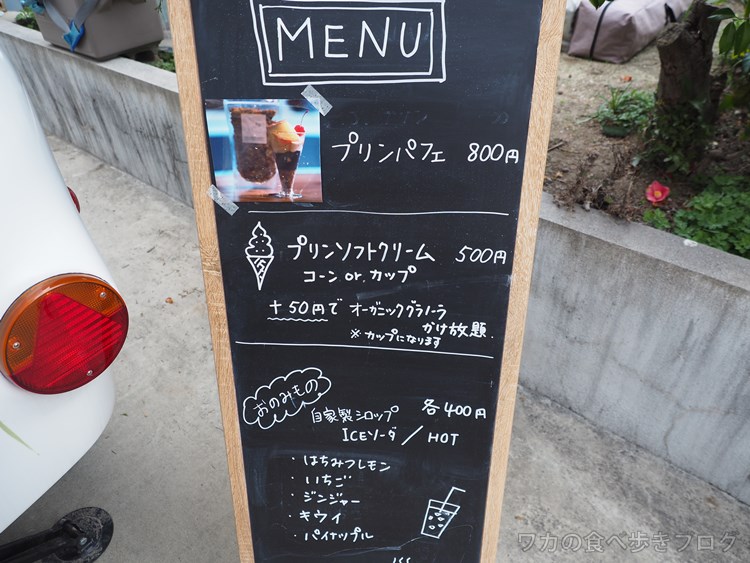 MENU
プリンパフェ 800円
プリンソフトクリーム 500円
コーン or. カップ
+50円で オーガニックグラノーラ
かけ放題.
※カップになります
おのみもの
自家製シロップ 各400円
ICEソーダ / HOT
・はちみつレモン
・いちご
・ジンジャー
・キウイ
・パイナップル
ワカの食べ歩きブログ